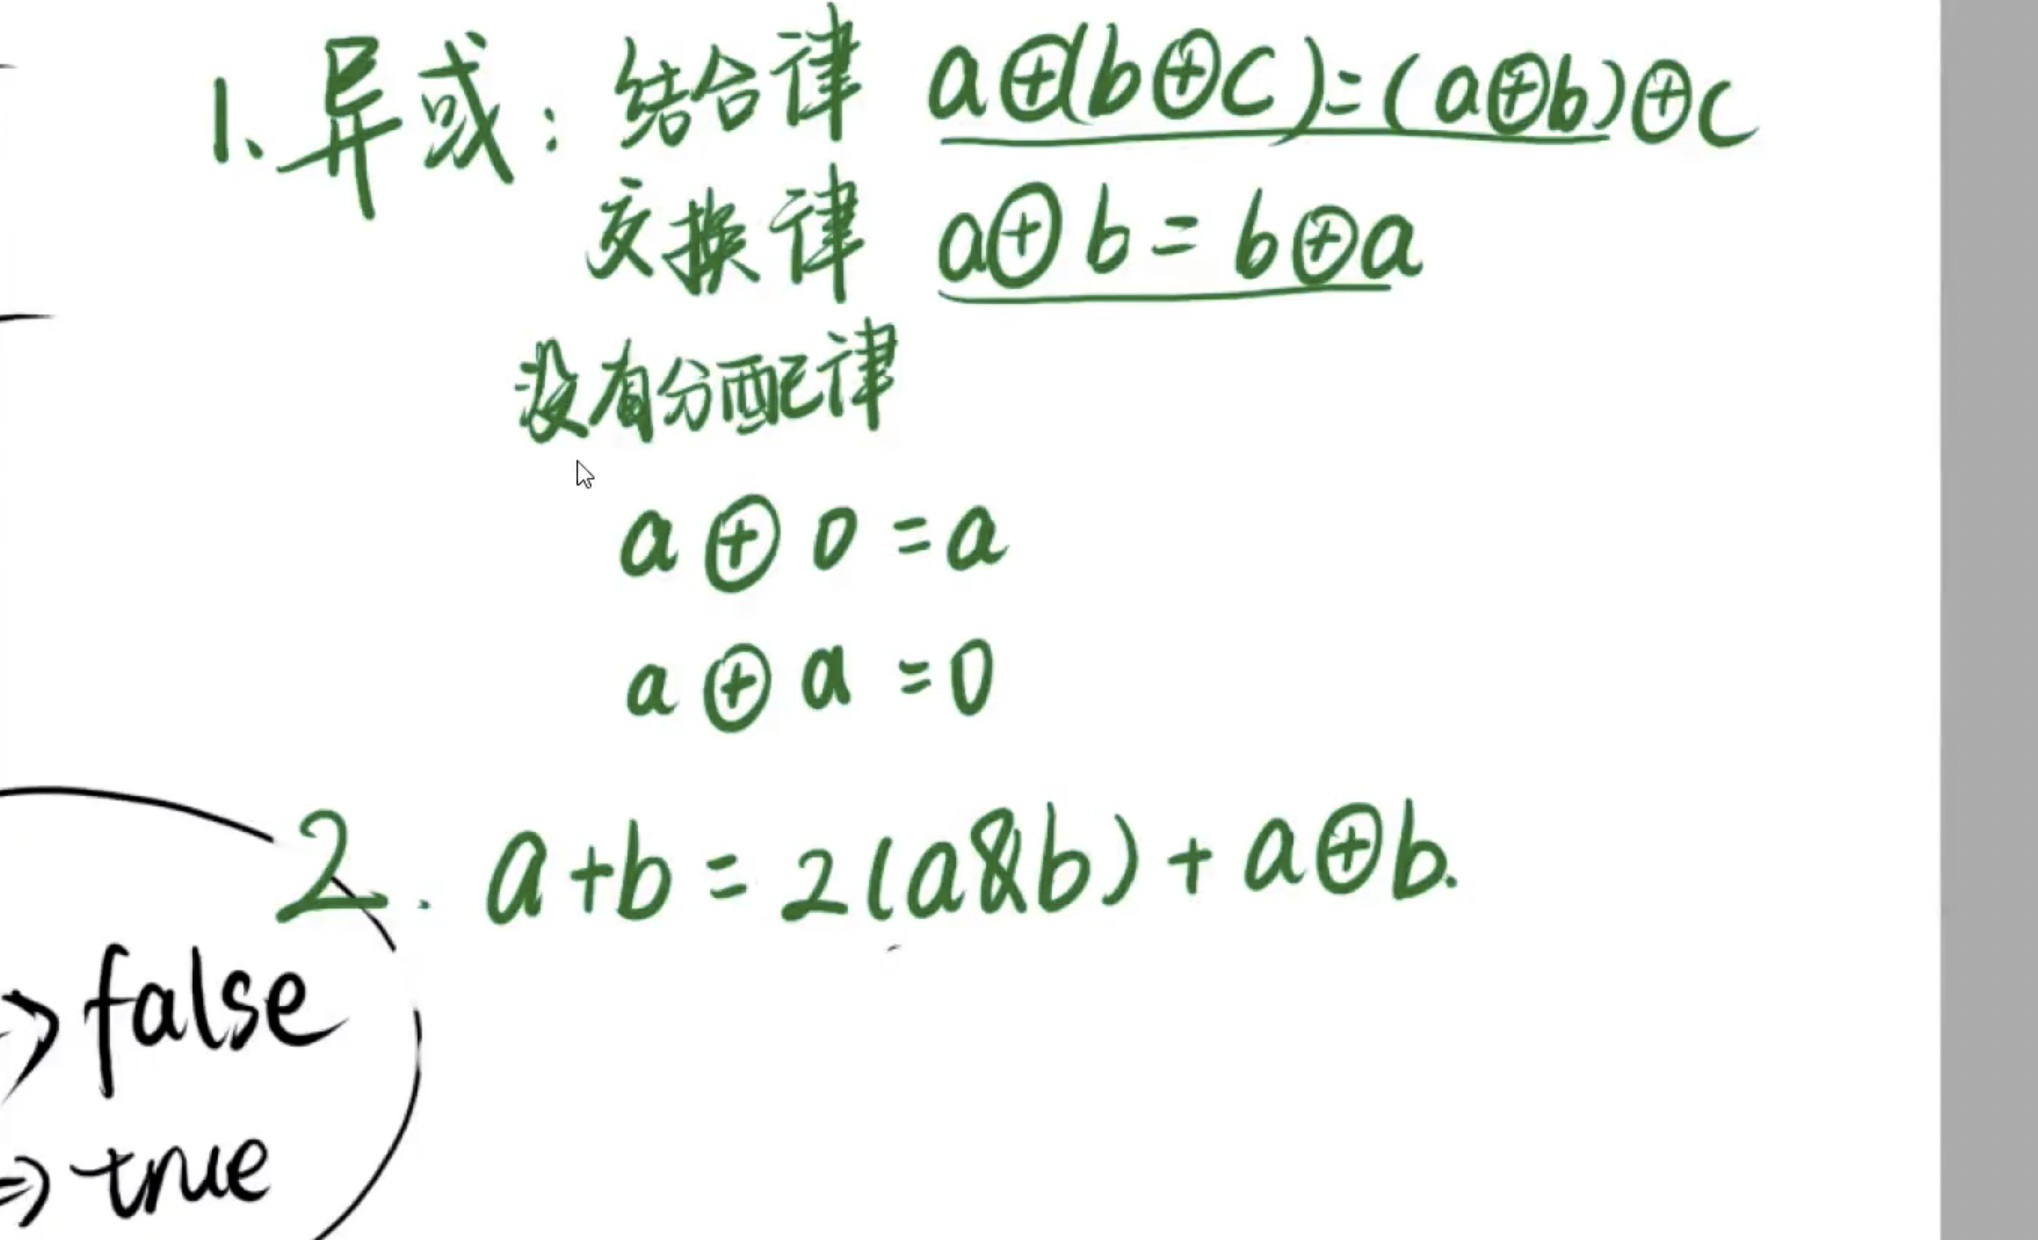 1、异或：结合律 a⊕(b⊕c)=(a⊕b)⊕c
交换律 a⊕b=b⊕a
没有分配律
a⊕0=a
a⊕a=0
2. a+b=2(a&b)+a⊕b.
=> false
=> true